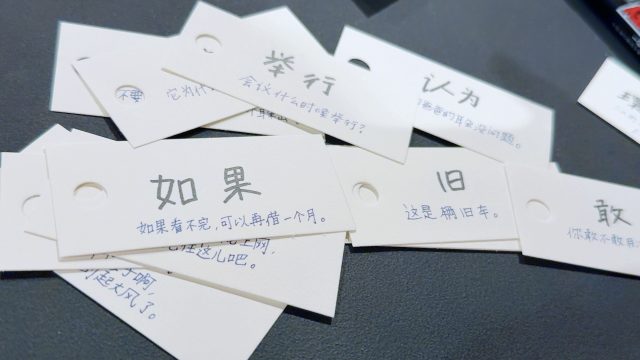 举行
会议什么时候举行？
认为
爸爸的耳朵没问题。
不要
它为什
如果
如果看不完，可以再借一个月。
旧
这是辆旧车。
敢
你敢不敢
上网，
在这儿吧。
子啊，
时起大风了。